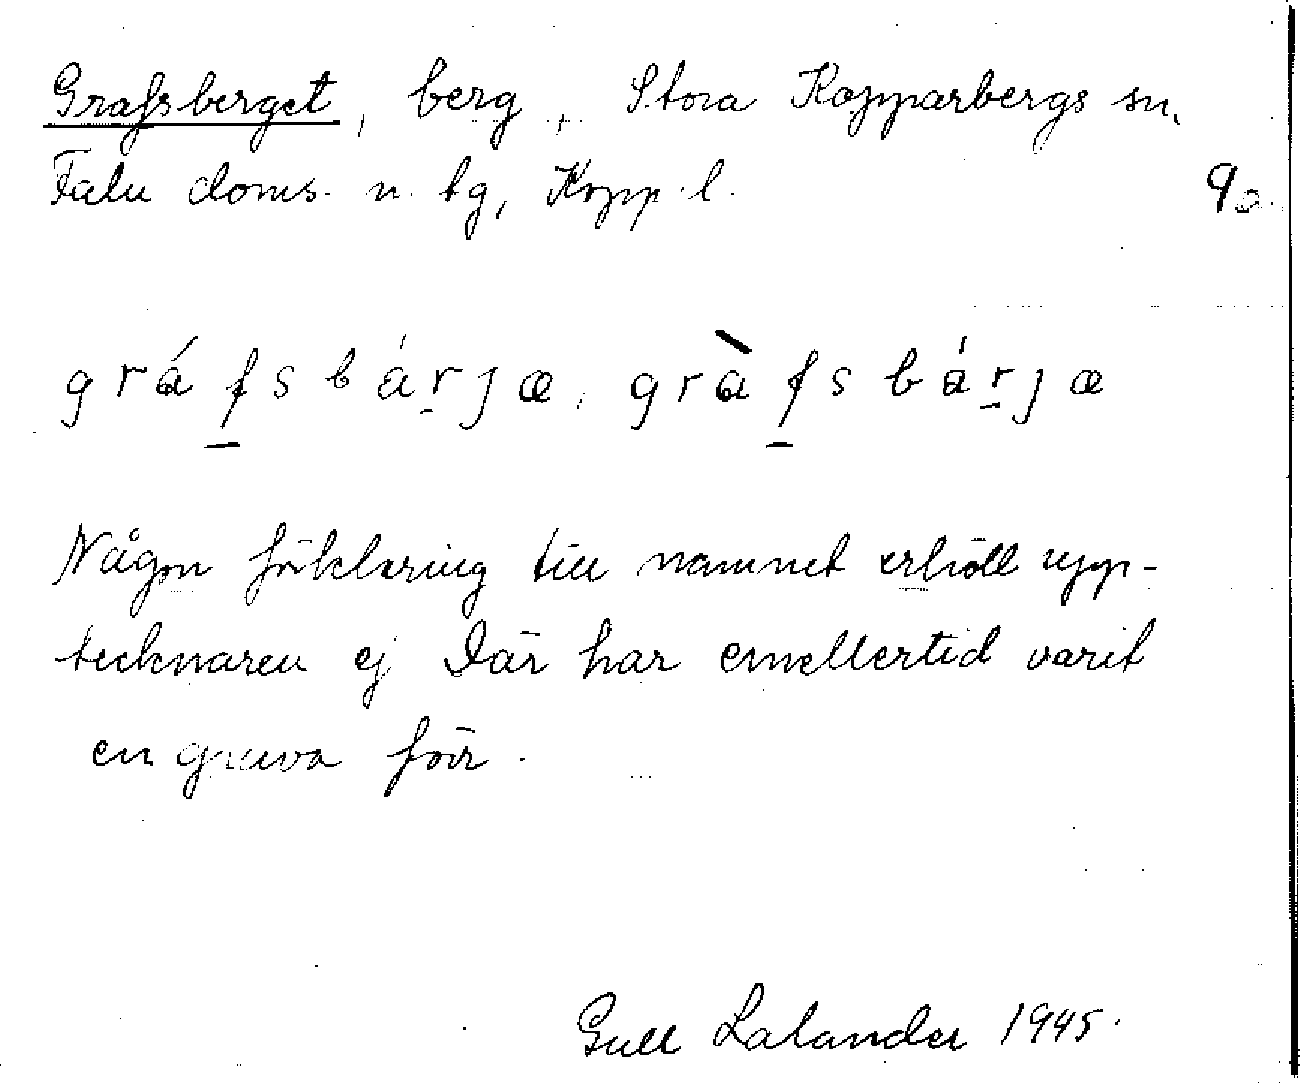 Grafsberget, berg, Stora Kopparbergs sn,
Falu doms. n. tg, Kopp. l. 9a.
gráfsbárjæ, gràfsbárjæ
Någon förklaring till namnet erhöll upp-
tecknaren ej Där har emellertid varit
en gruva förr.
Gull Lalander 1945.